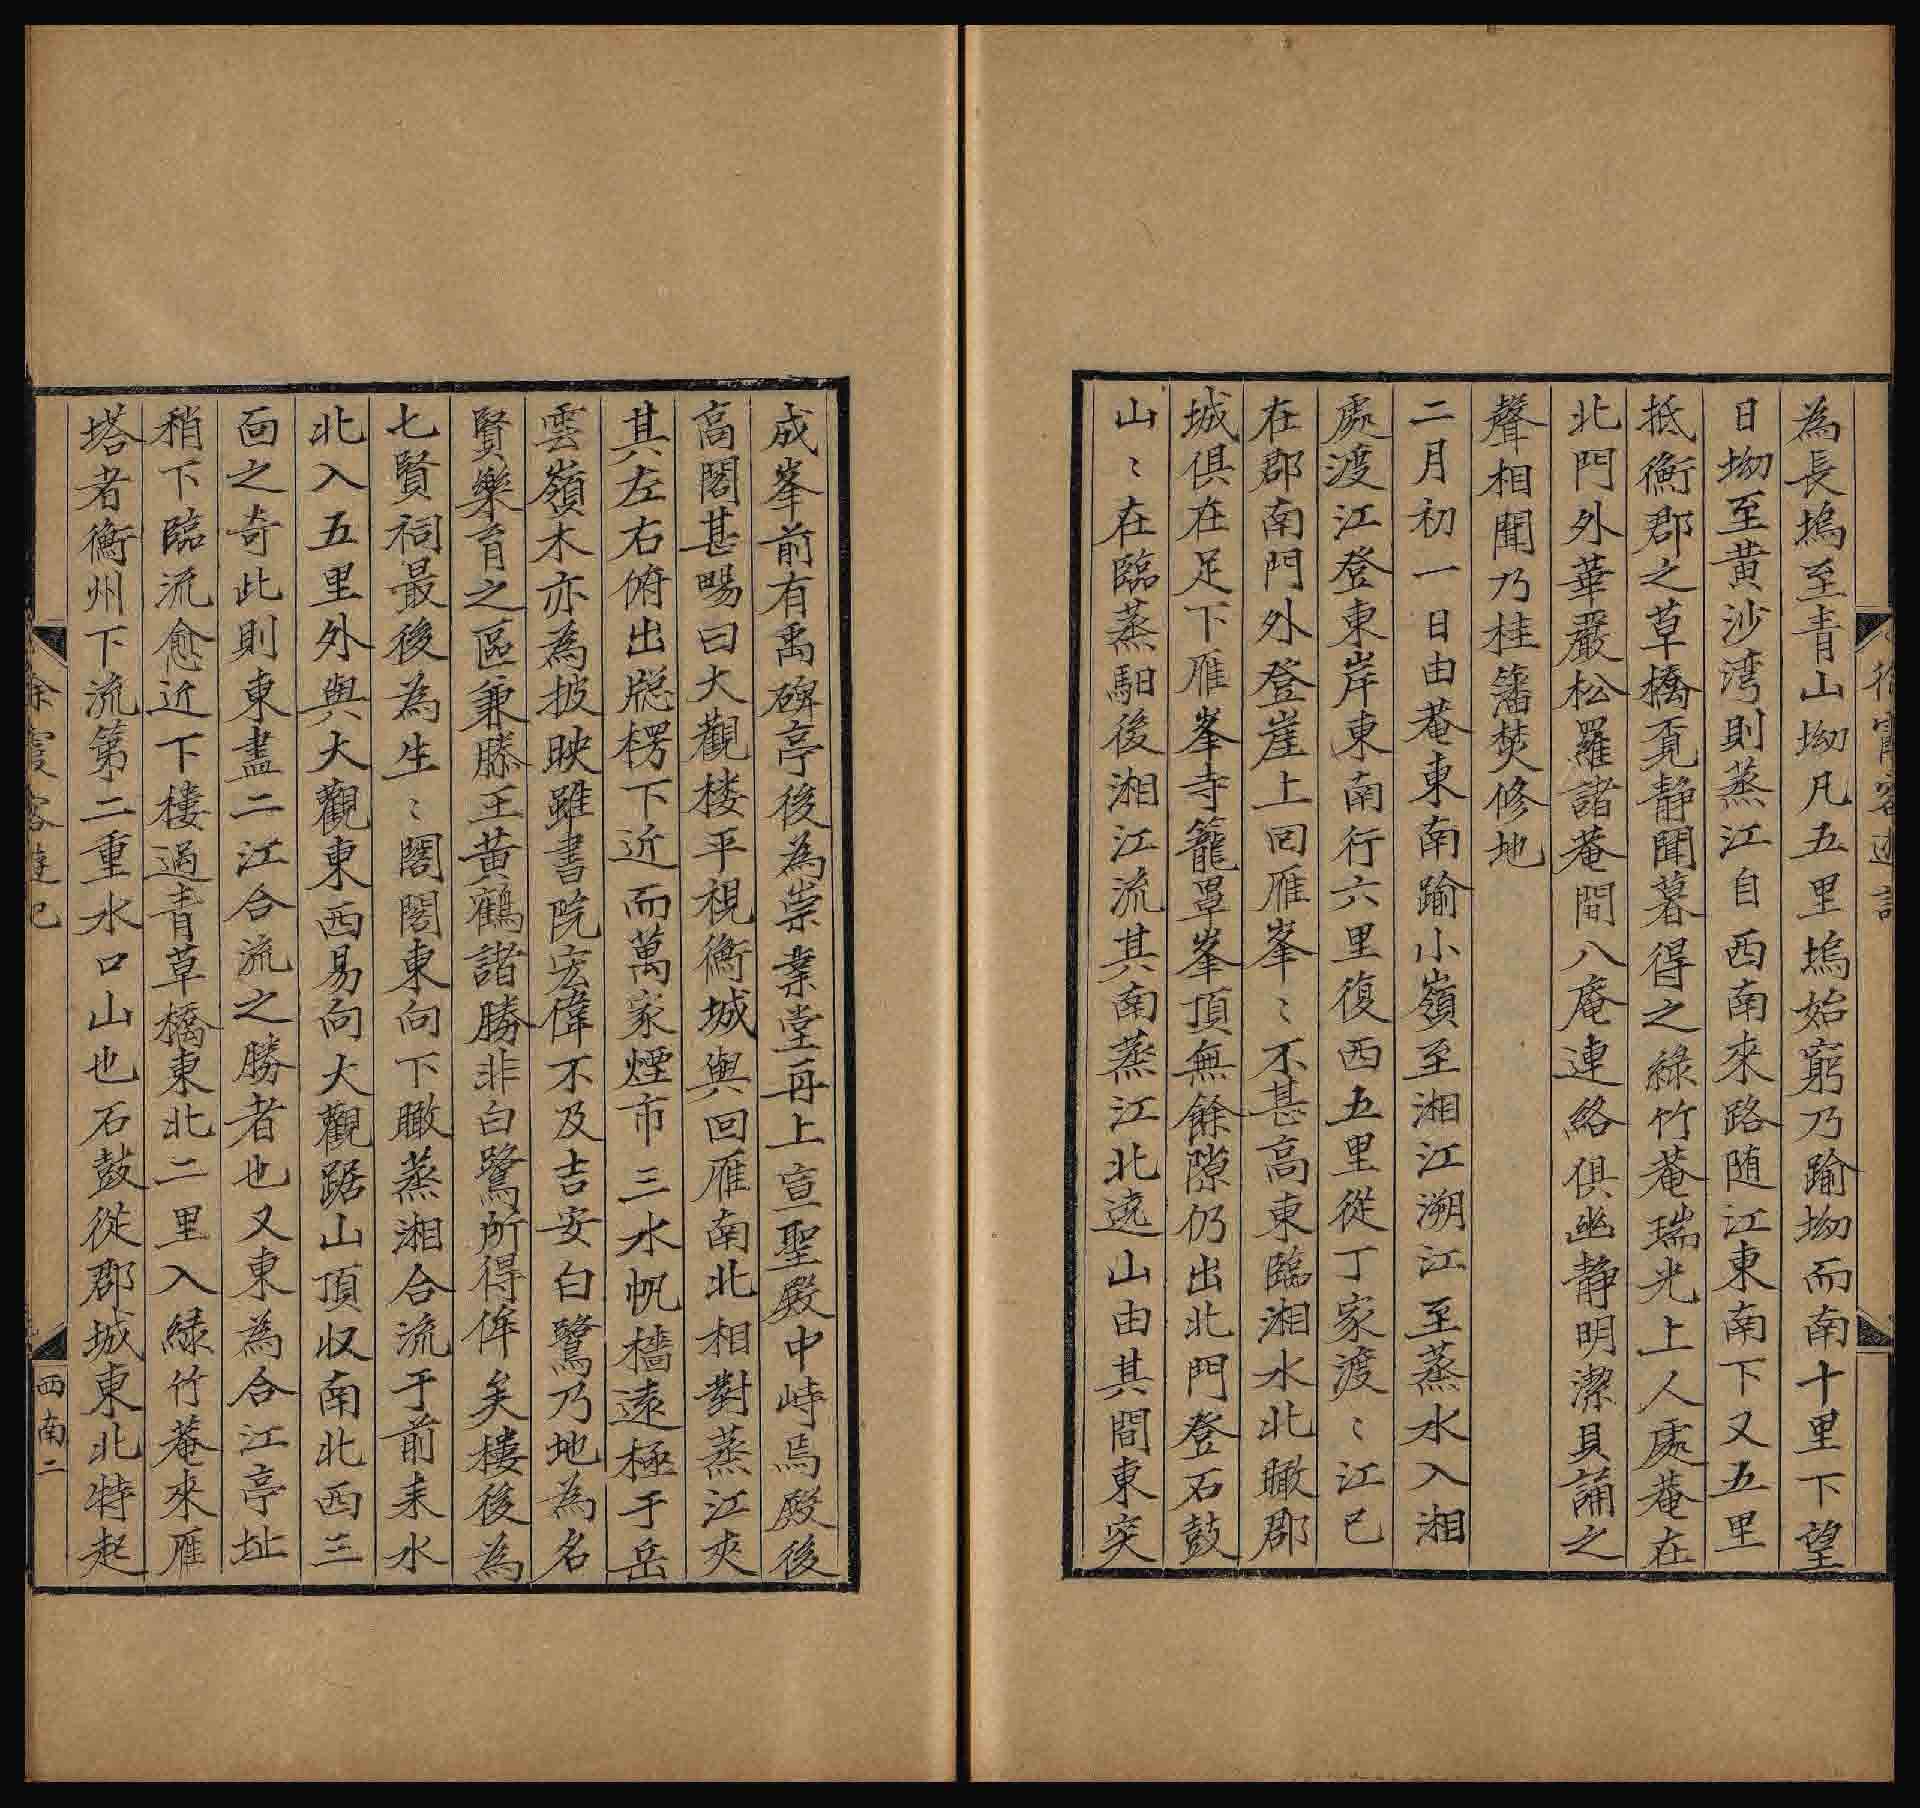 徐霞客遊記
為長塢至青山坳凡五里塢始窮乃踰坳而南十里下望
日坳至黄沙湾則蒸江自西南來路随江東南下又五里
抵衡郡之草橋覔静聞暮得之緑竹菴瑞光上人處菴在
北門外華嚴松羅諸菴間八庵連絡俱幽静明潔貝誦之
聲相聞乃桂籓焚修地
二月初一日由菴東南踰小嶺至湘江溯江至蒸水入湘
處渡江登東岸東南行六里復西五里從丁家渡〻江已
在郡南門外登崖上回雁峯〻不甚高東臨湘水北瞰郡
城俱在足下雁峯寺籠罩峯頂無餘隙仍出北門登石鼓
山〻在臨蒸馹後湘江流其南蒸江北遶山由其間東突
成峯前有禹碑亭後為崇業堂再上宣聖殿中峙焉殿後
高閣甚暢曰大觀楼平視衡城與回雁南北相對蒸江夾
其左右俯出牕楞下近而萬家煙市三水帆檣遠極于岳
雲嶺木亦為披映雖書院宏偉不及吉安白鷺乃地為名
賢樂育之區兼滕王黄鶴諸勝非白鷺所得侔矣樓後為
七賢祠最後為生〻閣閣東向下瞰蒸湘合流于前耒水
北入五里外與大觀東西易向大觀踞山頂収南北西三
面之奇此則東盡二江合流之勝者也又東為合江亭址
稍下臨流愈近下樓過青草橋東北二里入緑竹菴來雁
塔者衡州下流第二重水口山也石鼓從郡城東北特起
徐霞客遊記
西南二